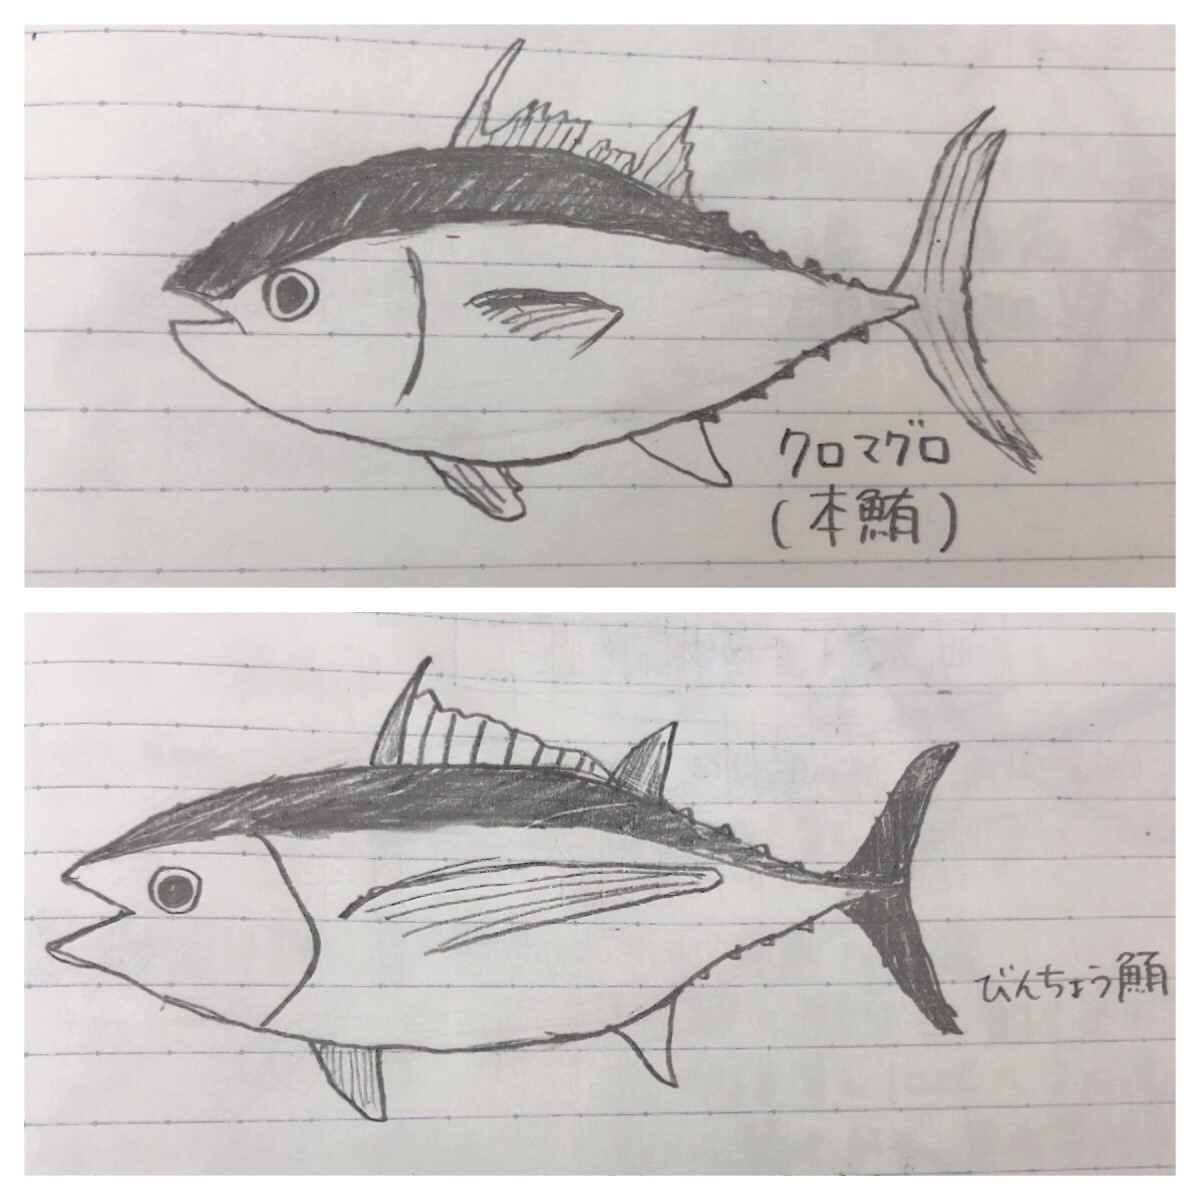 クロマグロ
(本鮪)
びんちょう鮪